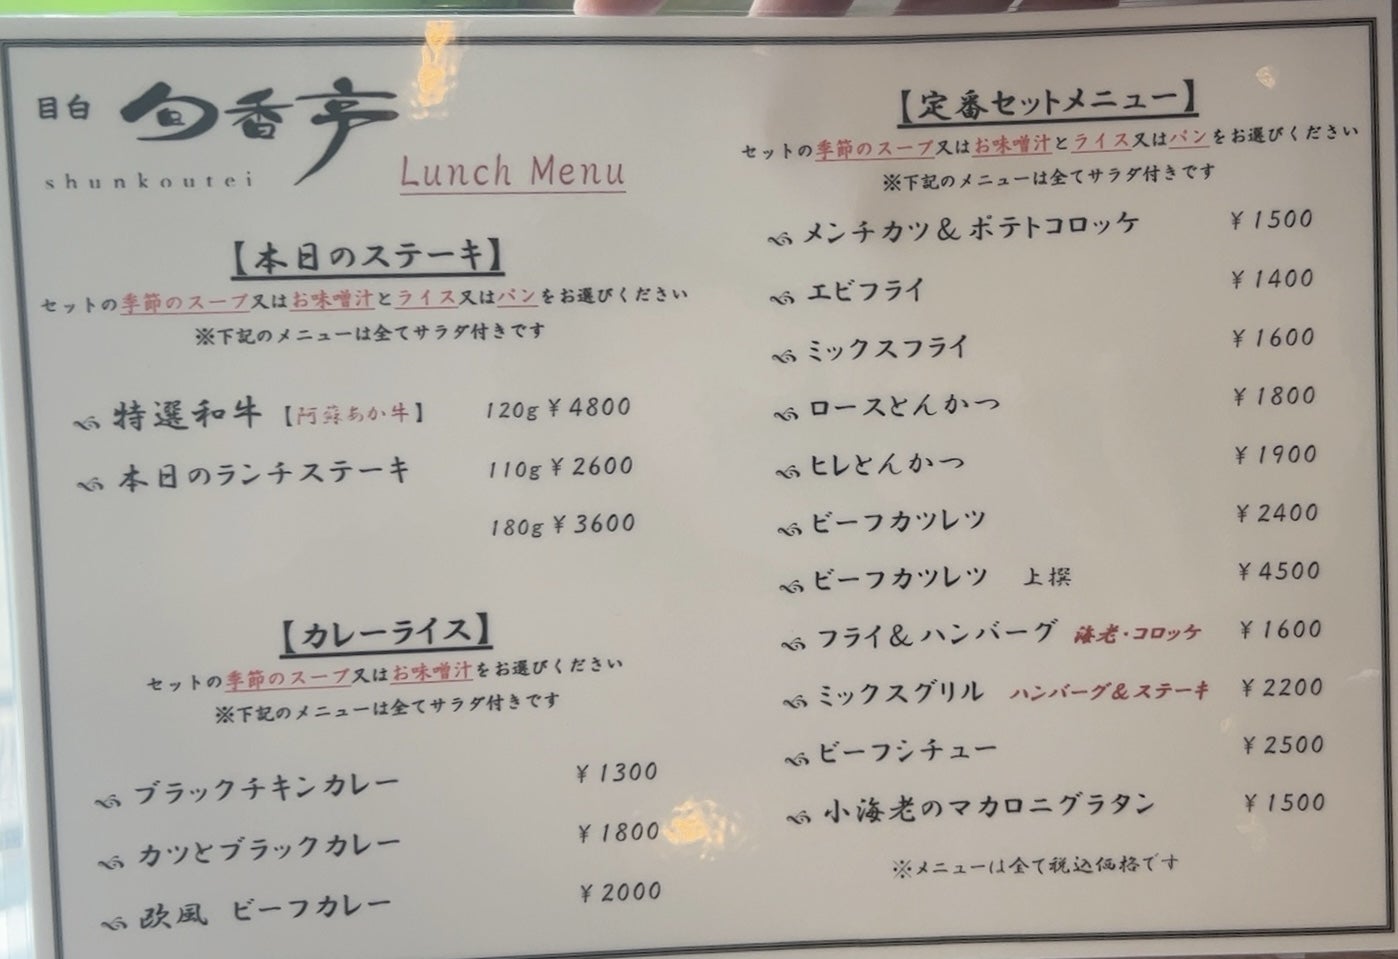 目白 旬香亭
shunkoutei
Lunch Menu
【本日のステーキ】
セットの季節のスープ又はお味噌汁とライス又はパンをお選びください
※下記のメニューは全てサラダ付きです
特選和牛【阿蘇あか牛】 120g ¥4800
本日のランチステーキ 110g ¥2600
180g ¥3600
【カレーライス】
セットの季節のスープ又はお味噌汁をお選びください
※下記のメニューは全てサラダ付きです
ブラックチキンカレー ¥1300
カツとブラックカレー ¥1800
欧風 ビーフカレー ¥2000
【定番セットメニュー】
セットの季節のスープ又はお味噌汁とライス又はパンをお選びください
※下記のメニューは全てサラダ付きです
メンチカツ&ポテトコロッケ ¥1500
エビフライ ¥1400
ミックスフライ ¥1600
ロースとんかつ ¥1800
ヒレとんかつ ¥1900
ビーフカツレツ ¥2400
ビーフカツレツ 上撰 ¥4500
フライ&ハンバーグ 海老・コロッケ ¥1600
ミックスグリル ハンバーグ&ステーキ ¥2200
ビーフシチュー ¥2500
小海老のマカロニグラタン ¥1500
※メニューは全て税込価格です